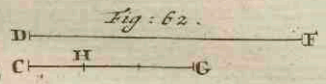 Fig: 62.
D F
H
C G